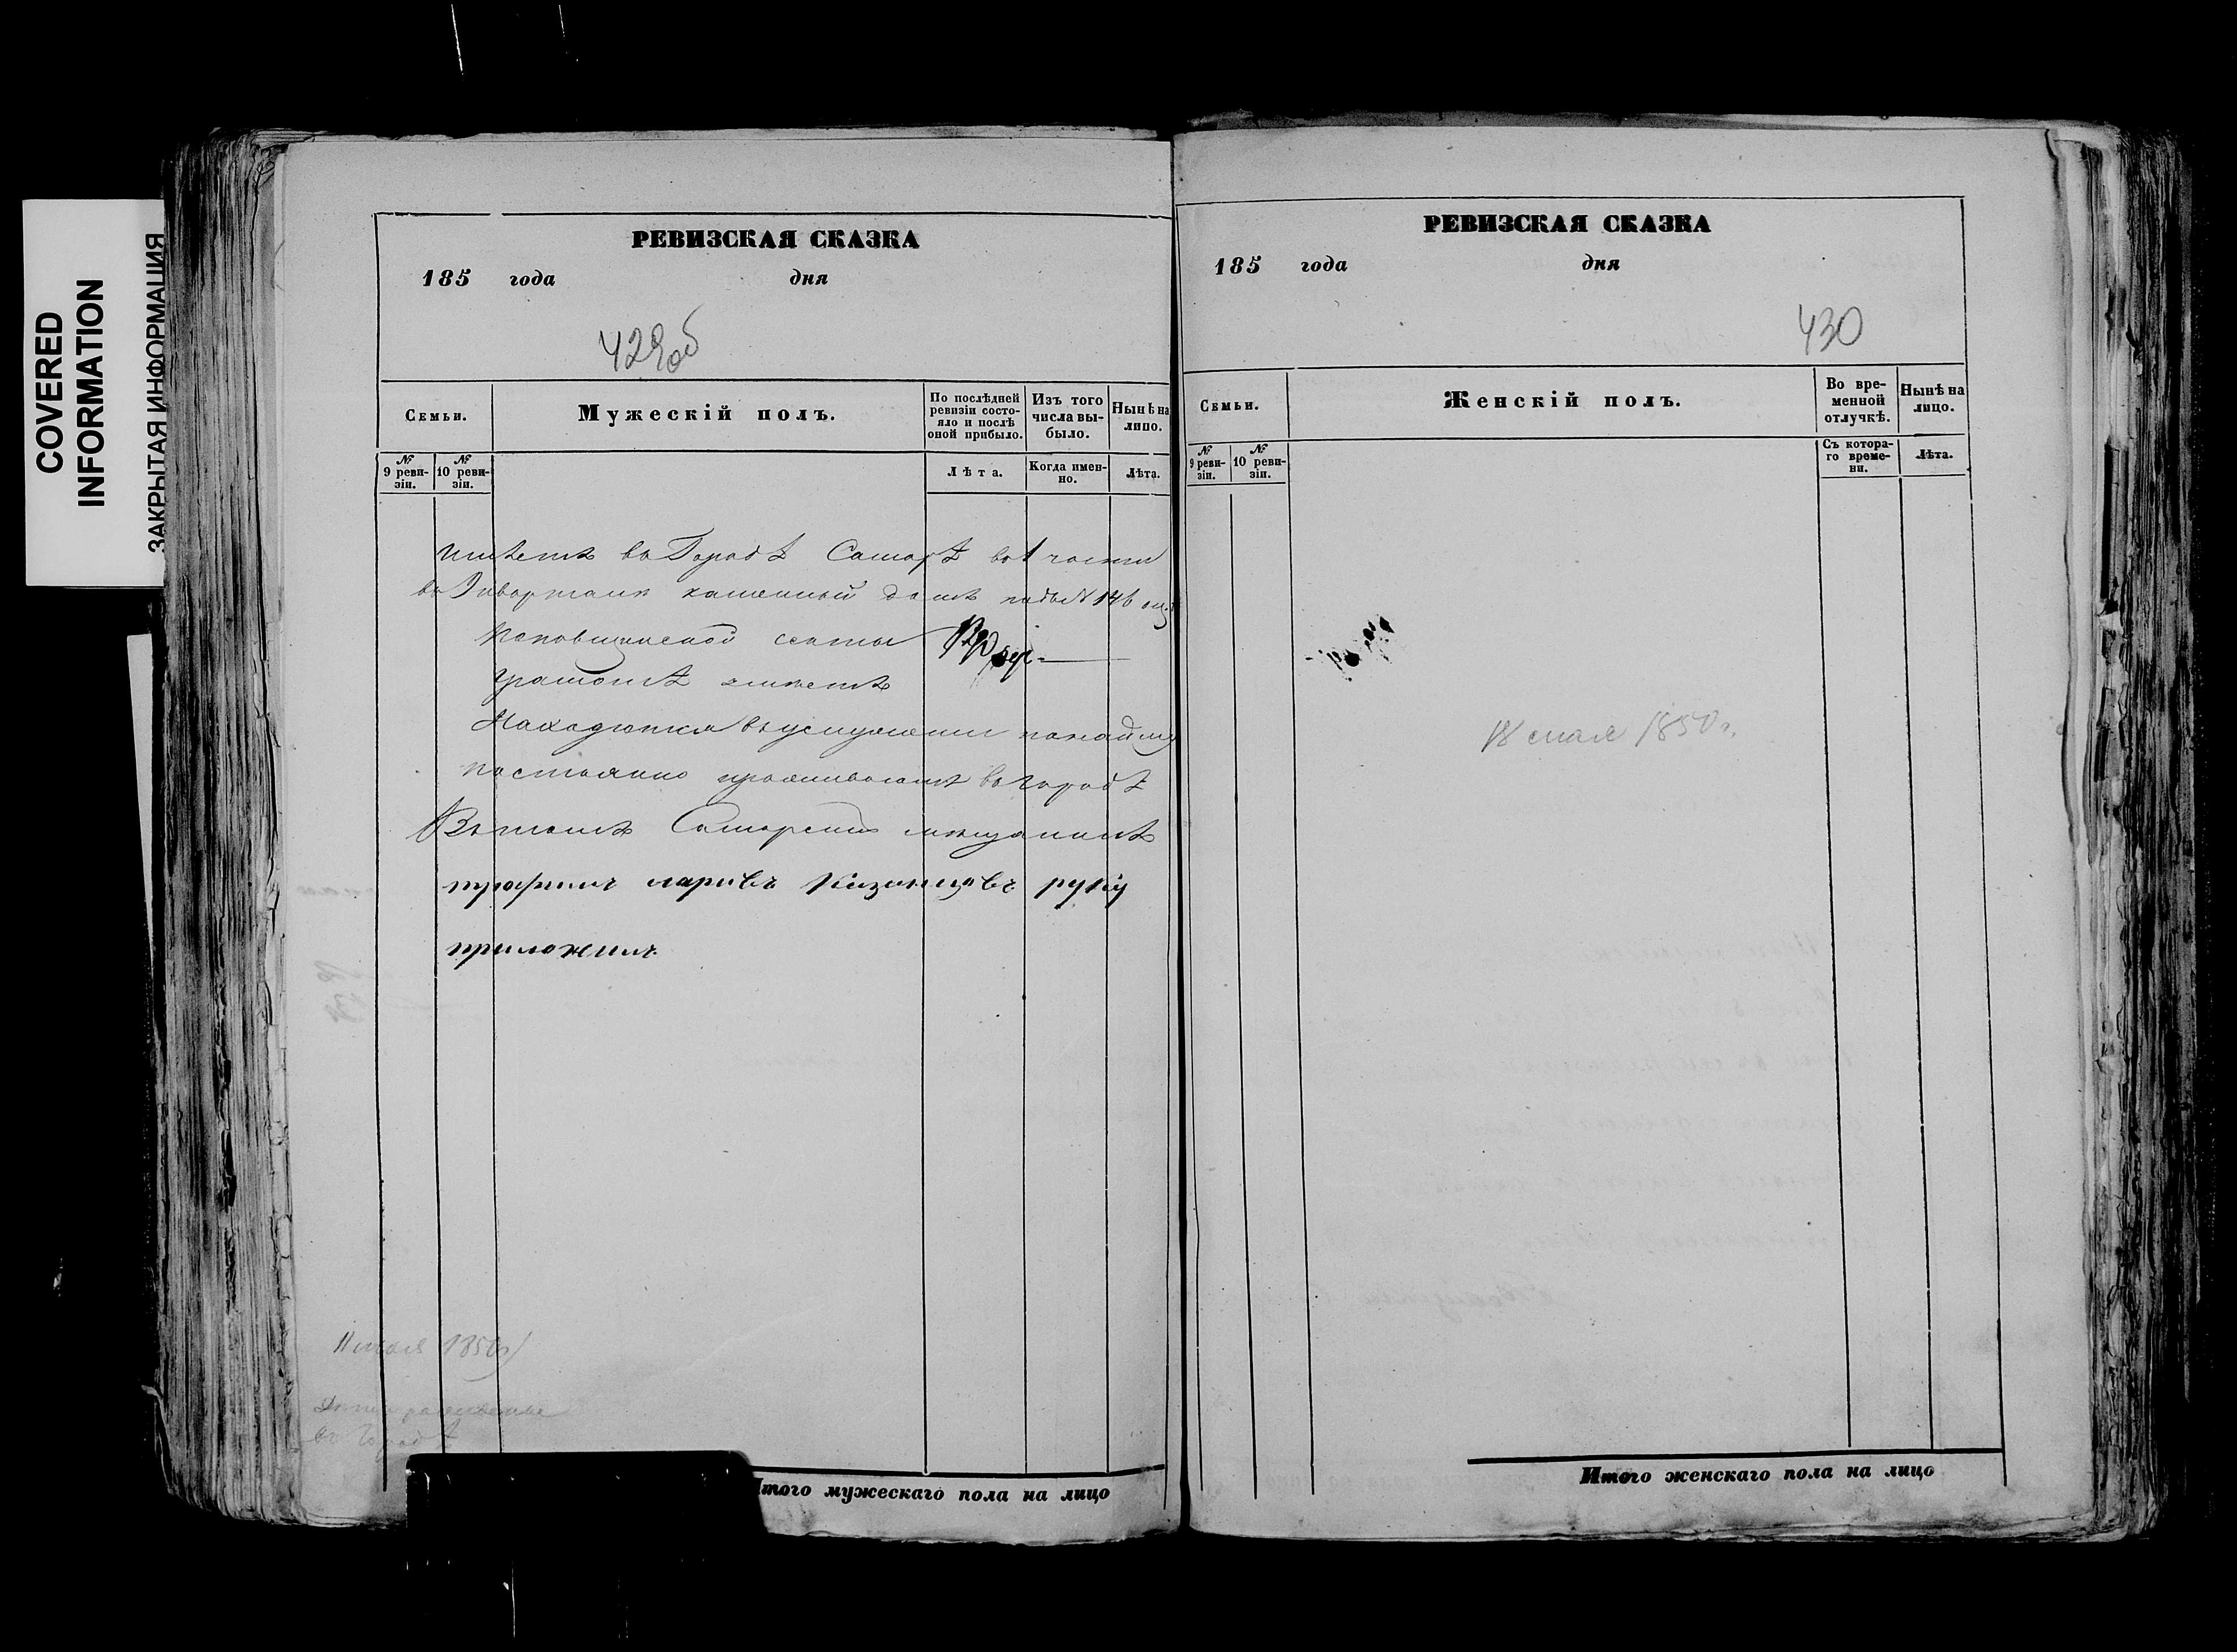 COVERED
INFORMATION
ЗАКРЫТАЯ ИНФОРМАЦИЯ
РЕВИЗСКАЯ СКАЗКА
185 года дня
429об
Семьи.
Мужескій полъ.
По послѣдней
ревизіи состо-
яло и послѣ
оной прибыло.
Изъ того
числа вы-
было.
Нынѣ на
лицо.
№
9 реви-
зіи.
№
10 реви-
зіи.
Лѣта.
Когда имен-
но.
Лѣта.
имѣетъ въ Городѣ Самарѣ во 1 части
въ кварталѣ каменный домъ подъ № 146
Поповщинской секты
грамотѣ умѣетъ
Находится въ услуженіи
постоянно проживаетъ въ городѣ
Въ томъ Самарскій мещанинъ
трофимъ Казанцовъ руку
приложилъ
1850
въ городѣ
Итого мужескаго пола на лицо
РЕВИЗСКАЯ СКАЗКА
185 года дня
430
Семьи.
Женскій полъ.
Во вре-
менной
отлучкѣ.
Нынѣ на
лицо.
№
9 реви-
зіи.
№
10 реви-
зіи.
Съ котора-
го време-
ни.
Лѣта.
18 мая 1850 г.
Итого женскаго пола на лицо